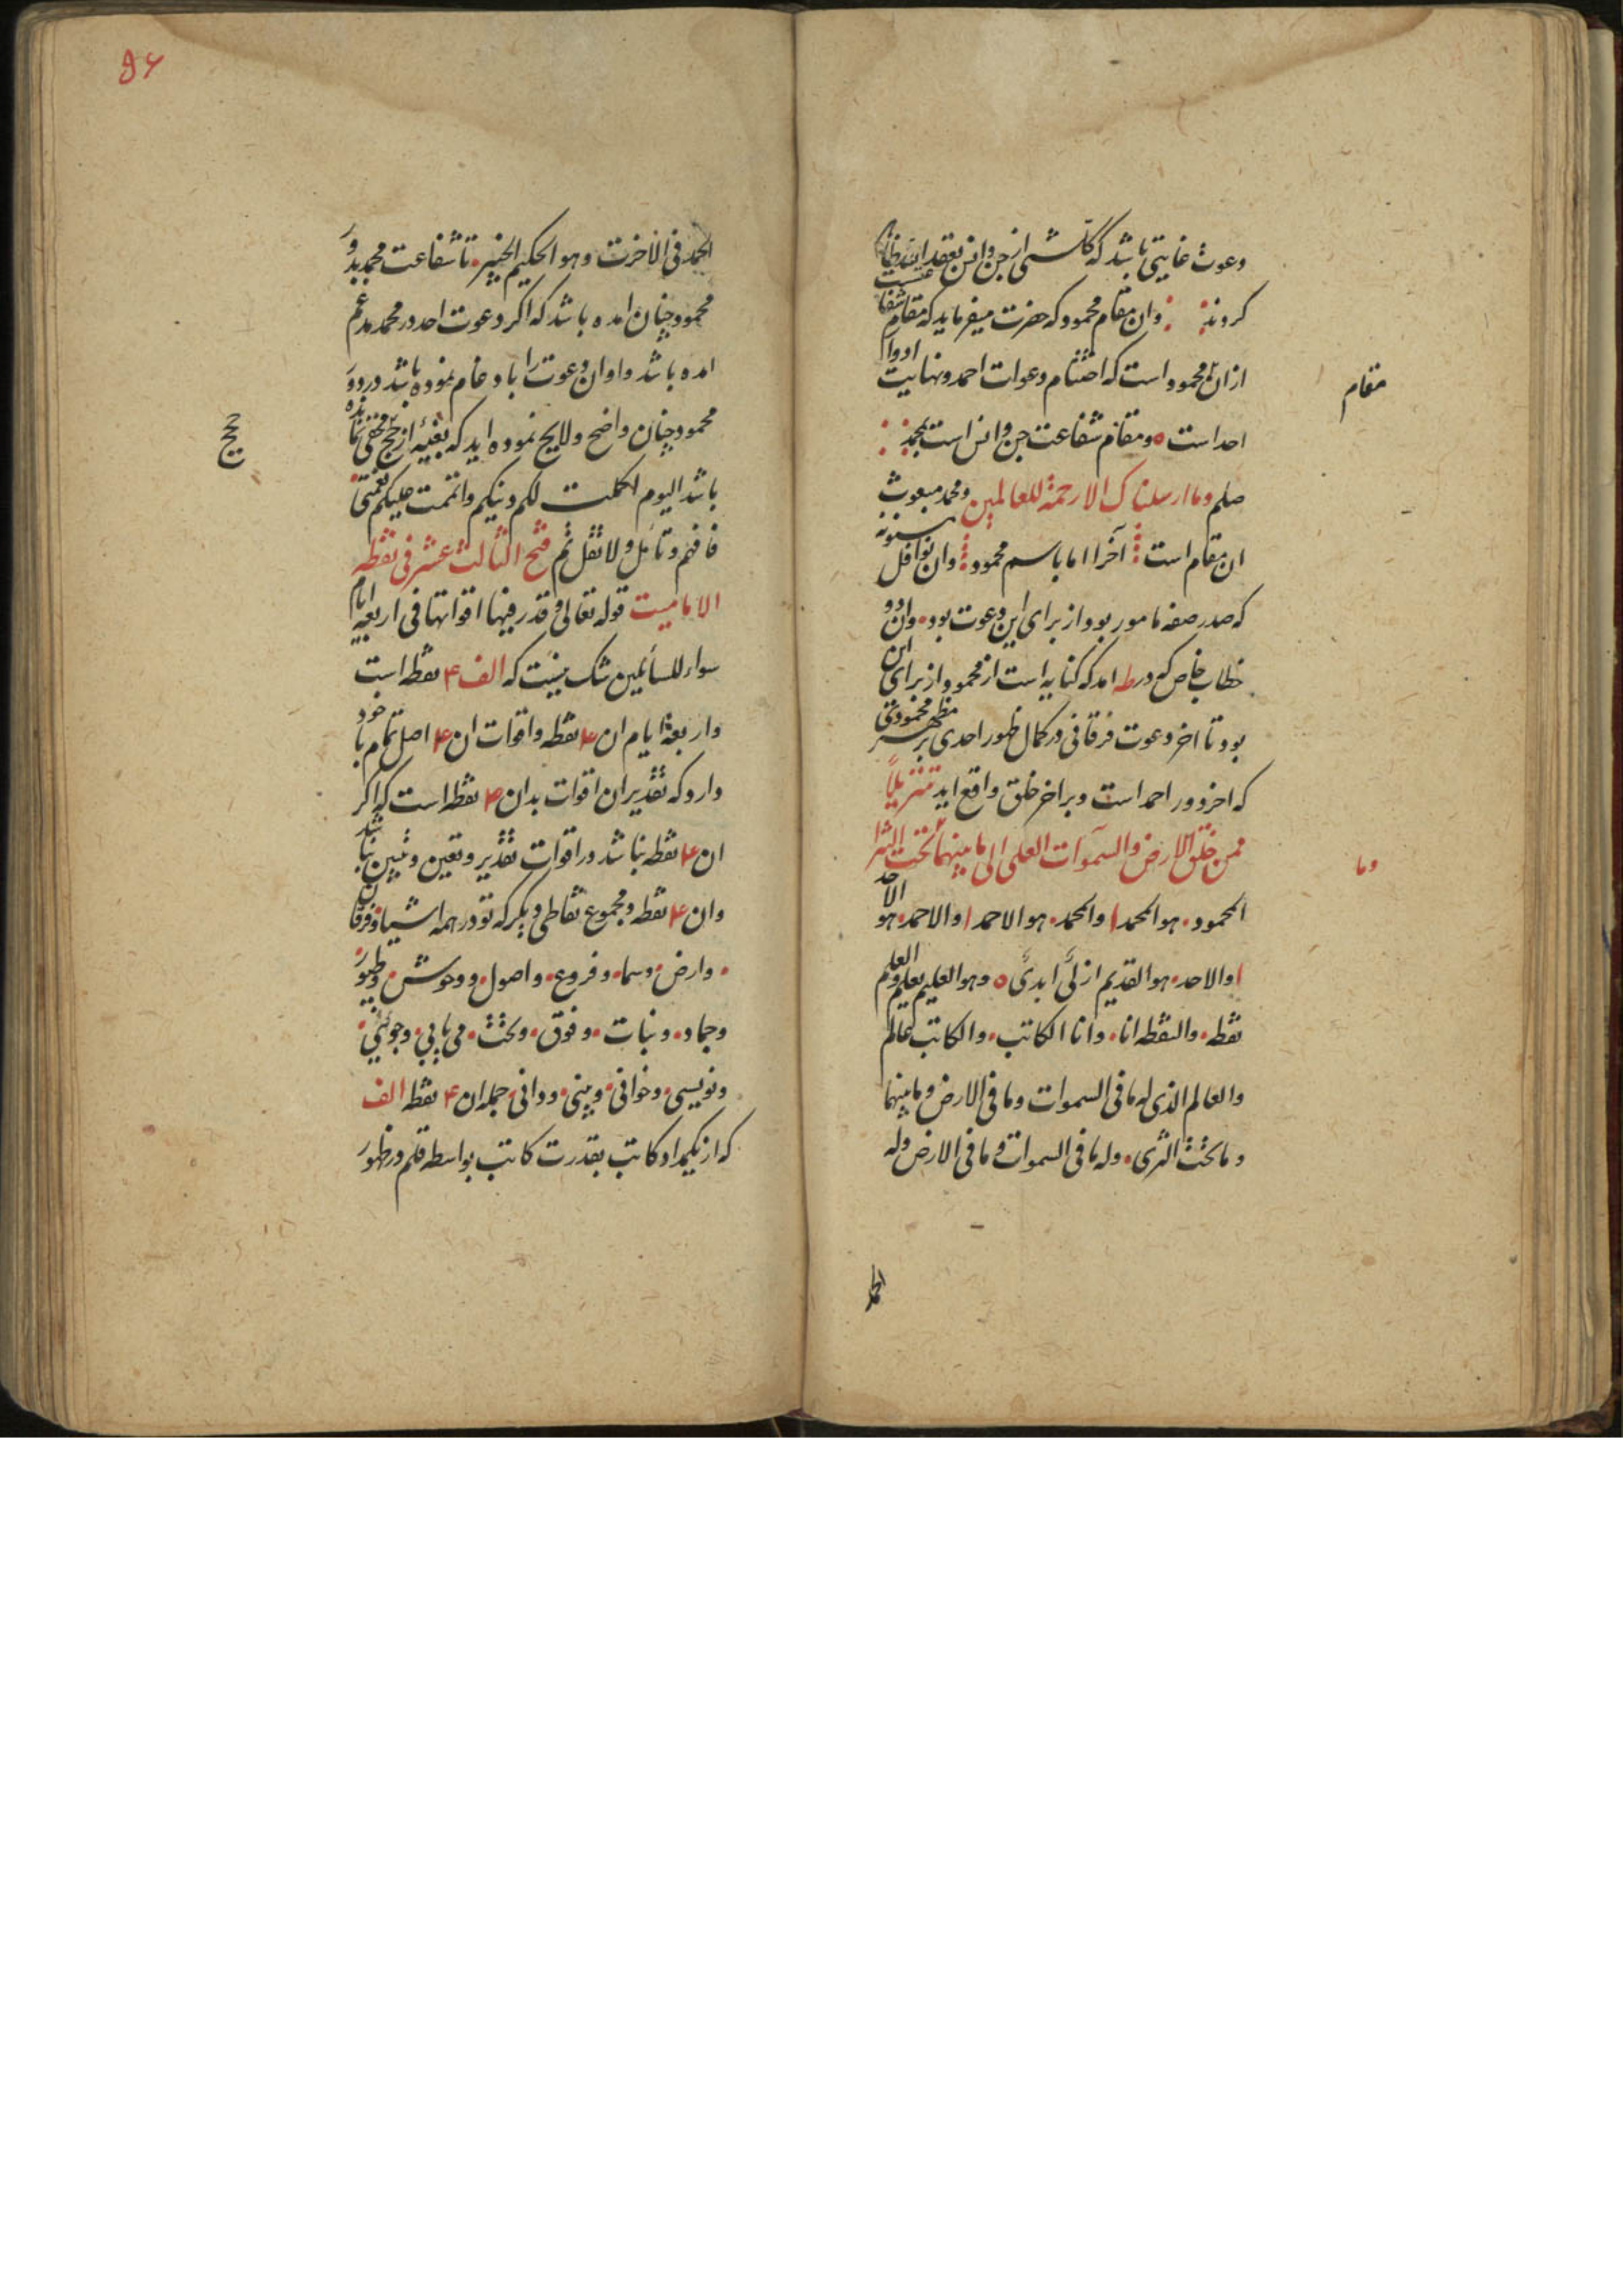 دعوت غایتی باشد که کل شئی از جن و انس بعقد
کردند وان مقام محمود که حضرت میفرماید که مقام شفاعتست
ازان محمود است که اختتام دعوات احمد و نهایت ادوار
مقام
احد است ومقام شفاعت جن وانس است بمحمد
صلم وما ارسلناک الا رحمة للعالمین ومحمد مبعوث
ان مقام است آخرا اما باسم محمود وان نوافل مسنونه
که صدر صفه مامور بود از برای این دعوت بود وان دو
خطاب خاص که در طه امد که کنایه است از محمود از برای این
بود تا اخر دعوت فرقانی در کمال ظهور احدی بر مظهر محمودتی
که اخر دور احمد است وبر اخر خلق واقع اید تنزیلاً
ممن خلق الارض والسموات العلی الی مابینهما تحت الثرا
وما
المحمود هو المحمد والمحمد هو الاحمد والاحمد هو الاحد
والاحد هو القدیم ازلیَّ ابدیَّ وهو العلیم بعلیم وم العلم
نقطه والنقطه انا وانا الکاتب والکاتب عالم
والعالم الذی له ما فی السموات وما فی الارض وما بینهما
وما تحث الثری وله ما فی السموات وما فی الارض وله
الحمد
۹۶
الحمد فی الاخرت وهو الحکیم الخبیر تا شفاعت محمد بدور
محمود چنان امده باشد که اکر دعوت احد در محمد مدغم
امده باشد واو ان دعوت را بادغام نموده باشد در دور
محمود چنان واضح ولایح نموده اید که بغیه از حجج مخفی نمانده
حجج
باشد الیوم اکملت لکم دینکم واتممت علیکم نعمتی
فافهم وتأمل ولا تقل ثم فتح الثالث عشر فی نقطه
الامامیت قوله تعالی وقدر فیها اقواتها فی اربعه ایام
سواء للسائلین شک نیست که الف ۴ نقطه است
واربعة ایام ان ۴ نقطه واقوات ان ۴ اصل تمام با خود
دارد که تقدیر ان اقوات بدان ۴ نقطه است که اکر
ان ۴ نقطه نباشد در اقوات تقدیر وتعین وتبین نباشد
وان ۴ نقطه ومجموع نقاطی دیکر که تو در همه اشیا وفرقان
وارض وسما وفروع واصول ووحوش وطیور
وجماد ونبات وفوق وتحث می یابی وجوئی
ونویسی وخوانی وبینی ودانی جمله ان ۴ نقطه الف
که از یکمداد کاتب بقدرت کاتب بواسطه قلم در ظهور